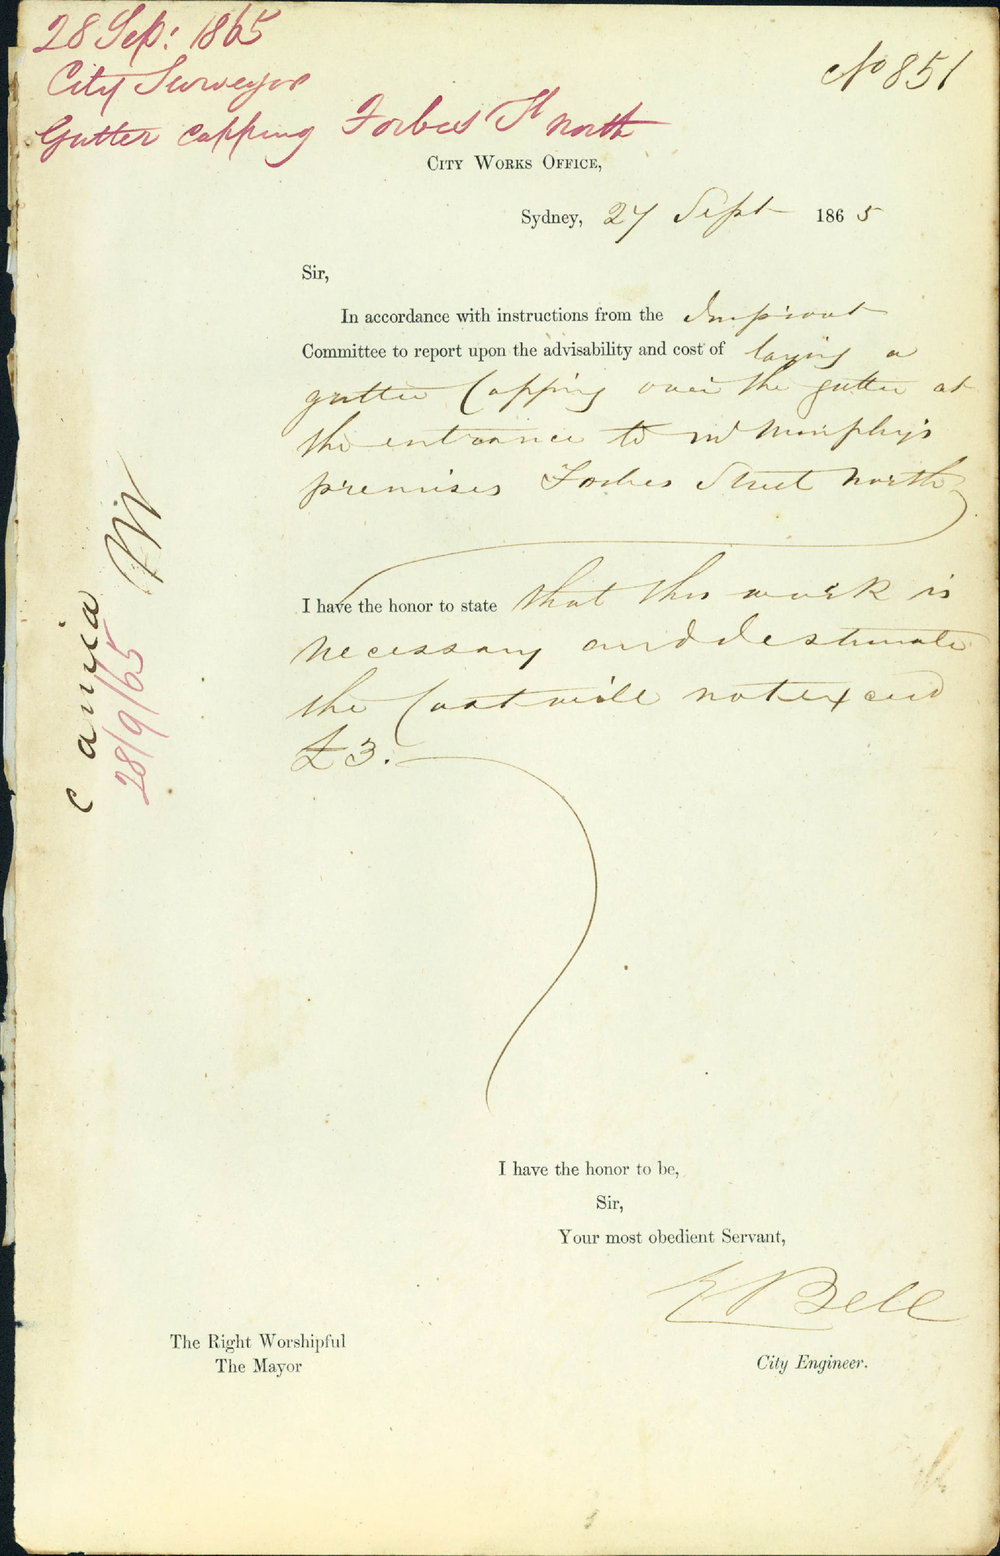 28 Sep: 1865
City Surveyor
Gutter capping Forbes St north
No 851
City Works Office,
Sydney, 27 Sept 1865
Sir,
In accordance with instructions from the Improvt
Committee to report upon the advisability and cost of laying a
gutter Capping over the gutter at
the entrance to Mr Murphy's
premises Forbes Street North
I have the honor to state that this work is
necessary and I estimate
the Cost will not exceed
£3.
28/9/65
I have the honor to be,
Sir,
Your most obedient Servant,
E Bell
City Engineer.
The Right Worshipful
The Mayor